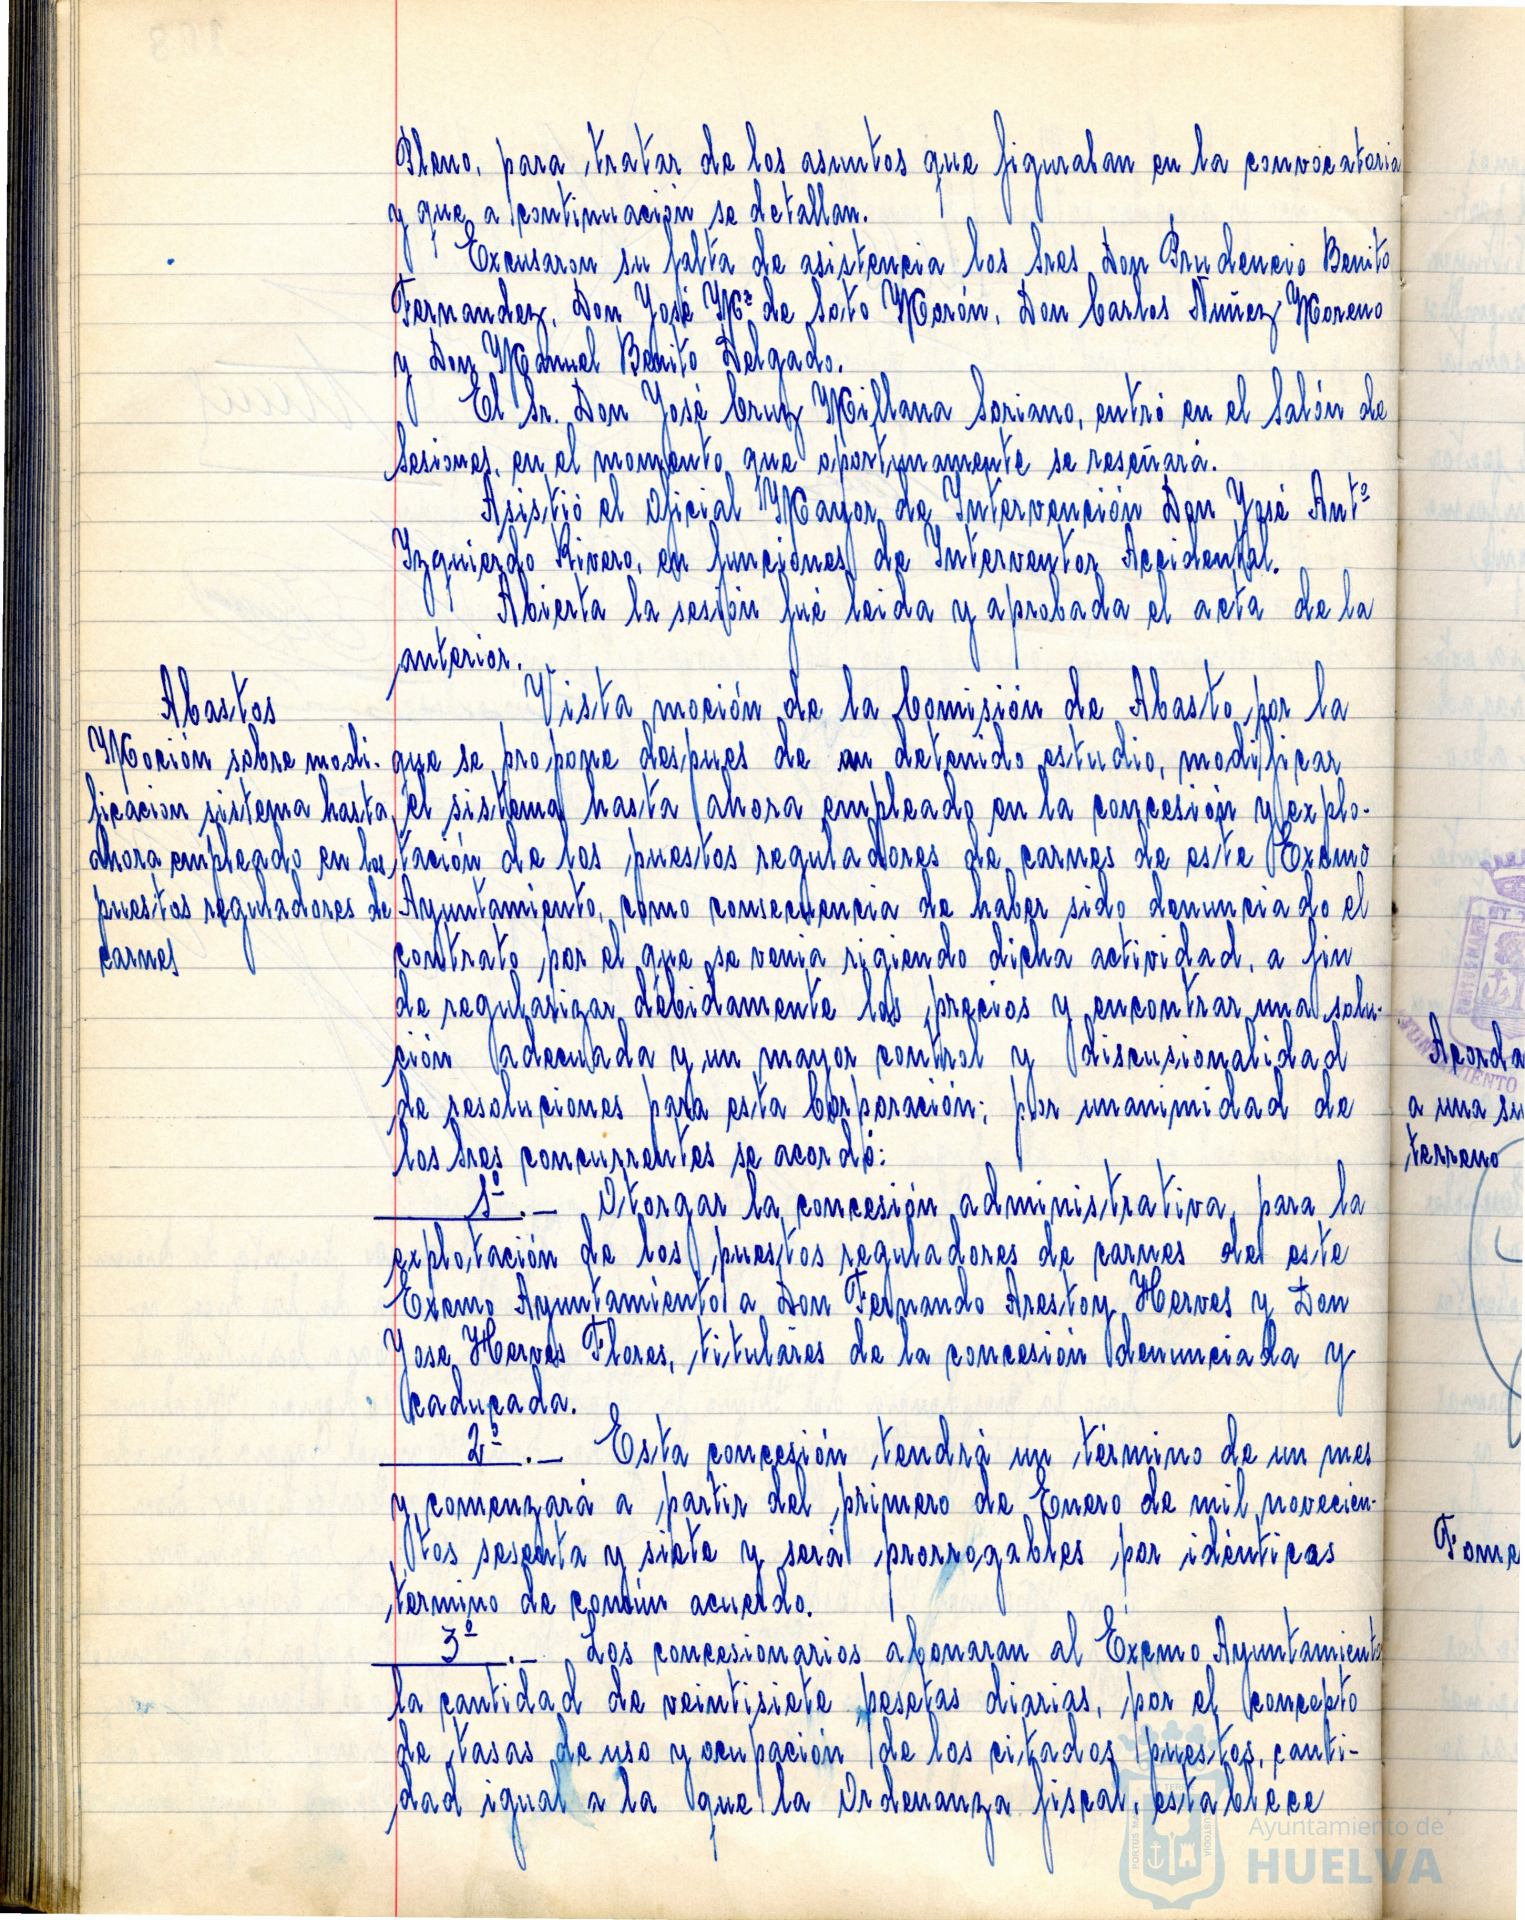 Pleno, para tratar de los asuntos que figuraban en la convocatoria
y que a continuación se detallan.
Excusaron su falta de asistencia los Sres Don Prudencio Benito
Fernandez, Don José Mª de Soto Morón, Don Carlos Núñez Moreno
y Don Manuel Benito Delgado.
El Sr. Don José Cruz Millana Soriano, entró en el Salón de
Sesiones, en el momento que oportunamente se reseñará.
Asistió el Oficial Mayor de Intervención Don José Antº
Izquierdo Rivero, en funciones de Interventor Accidental.
Abierta la sesión fué leida y aprobada el acta de la
anterior.
Abastos
Moción sobre modi-
ficacion sistema hasta
ahora empleado en los
puestos reguladores de
carnes
Vista moción de la Comisión de Abasto por la
que se propone despues de un detenido estudio, modificar
el sistema hasta ahora empleado en la concesión y explo-
tación de los puestos reguladores de carnes de este Excmo
Ayuntamiento, como consecuencia de haber sido denunciado el
contrato por el que se venia rigiendo dicha actividad, a fin
de regularizar debidamente los precios y encontrar una solu-
ción adecuada y un mayor control y discusionalidad
de resoluciones para esta Corporación; por unanimidad de
los Sres concurrentes se acordó:
1º.— Otorgar la concesión administrativa para la
explotación de los puestos reguladores de carnes de este
Excmo Ayuntamiento a Don Fernando Arestoy Herves y Don
Jose Herves Flores, titulares de la concesión denunciada y
caducada.
2º.— Esta concesión tendrá un término de un mes
y comenzará a partir del primero de Enero de mil novecien-
tos sesenta y siete y será prorrogables por idénticos
termino de común acuerdo.
3º.— Los concesionarios abonaran al Excmo Ayuntamiento
la cantidad de veintisiete pesetas diarias, por el concepto
de tasas de uso y ocupación de los citados puestos, canti-
dad igual a la que la Ordenanza fiscal, establece
Acorda
a una su
terreno
Fome
Ayuntamiento de
HUELVA